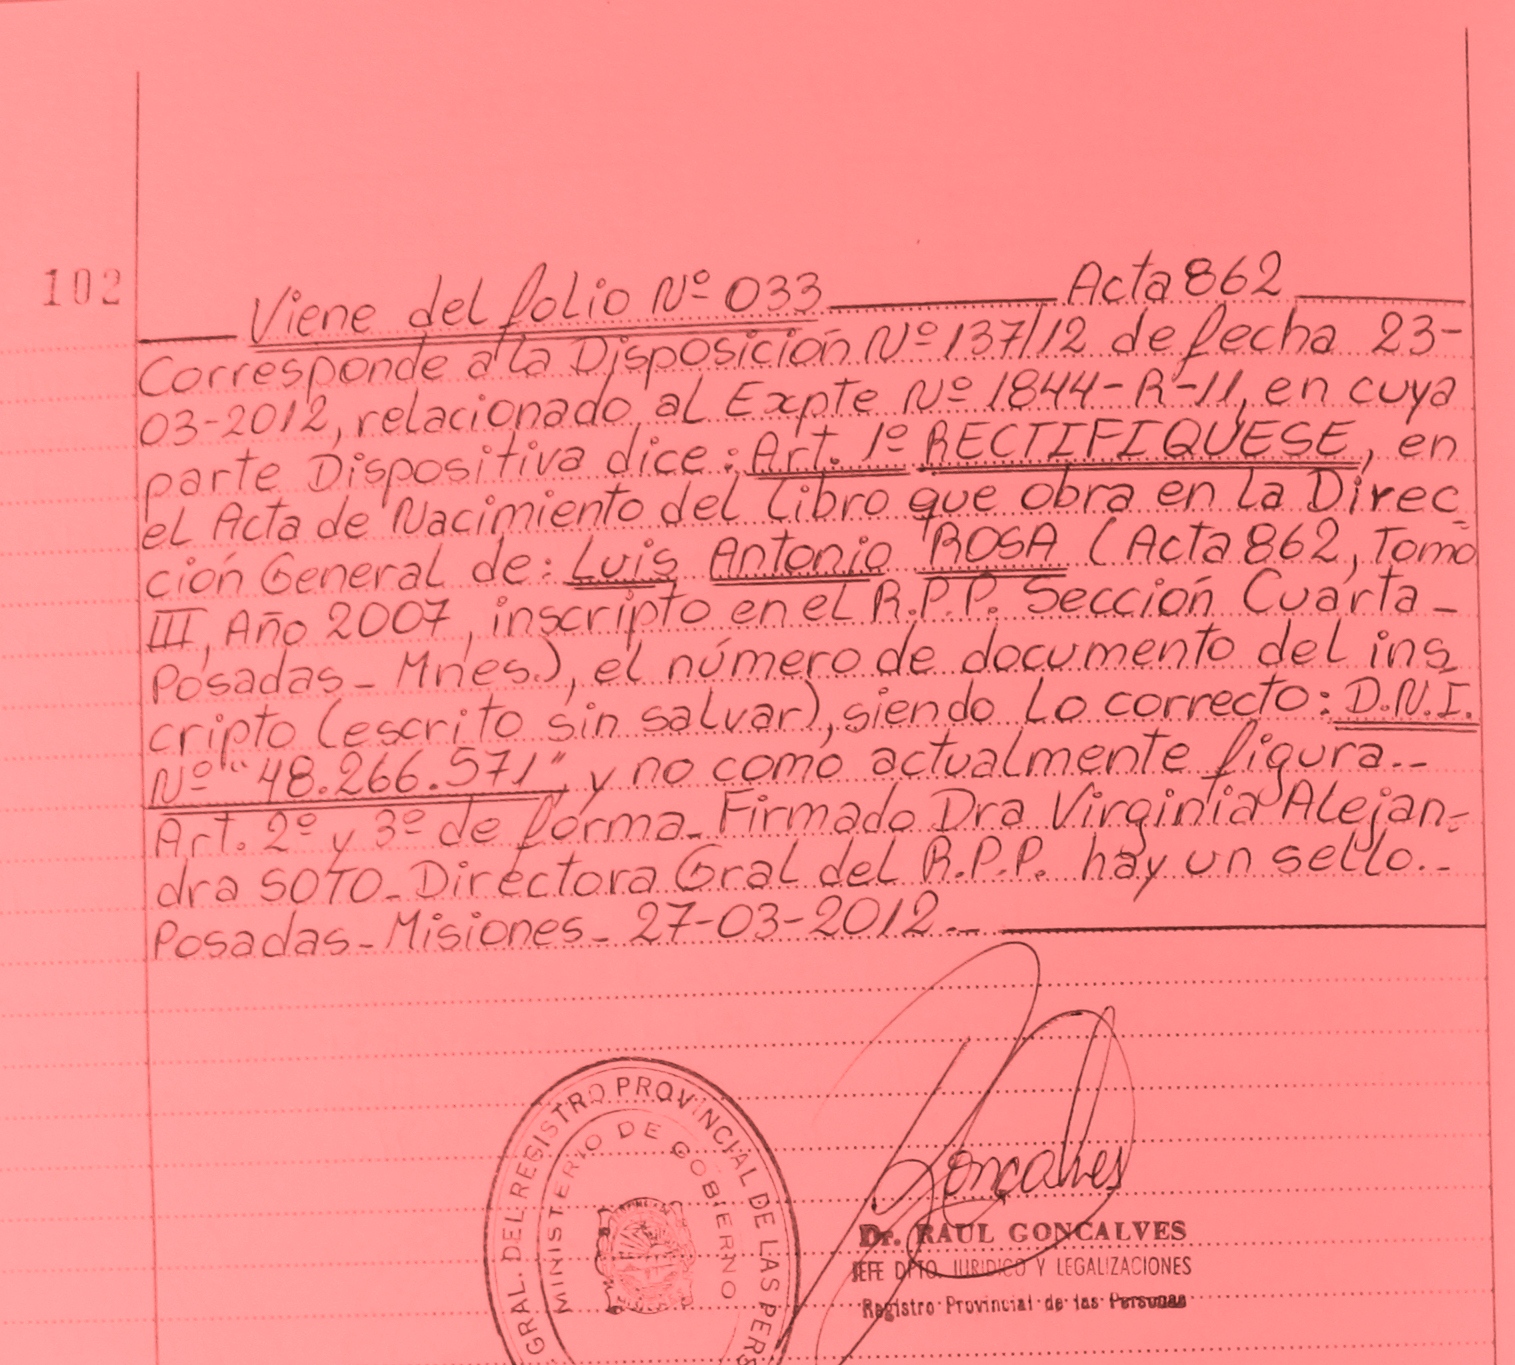 102
Viene del folio Nº 033 Acta 862
Corresponde a la Disposición Nº 137/12 de fecha 23-
03-2012, relacionado al Expte Nº 1844-R-11, en cuya
parte Dispositiva dice: Art. 1º RECTIFIQUESE, en
el Acta de Nacimiento del Libro que obra en la Direc
ción General de: Luis Antonio ROSA (Acta 862, Tomo
III, Año 2007, inscripto en el R.P.P. Sección Cuarta -
Posadas - Mnes.), el número de documento del ins
cripto (escrito sin salvar), siendo lo correcto: D.N.I.
Nº "48.266.571" y no como actualmente figura.--
Art. 2º y 3º de forma - Firmado Dra Virginia Alejan-
dra SOTO - Directora Gral del R.P.P. hay un sello.--
Posadas - Misiones - 27-03-2012.--
GRAL. DEL REGISTRO PROVINCIAL DE LAS PERS
MINISTERIO DE GOBIERNO
Goncalves
Dr. RAUL GONCALVES
JEFE DPTO. JURIDICO Y LEGALIZACIONES
Registro Provincial de las Personas